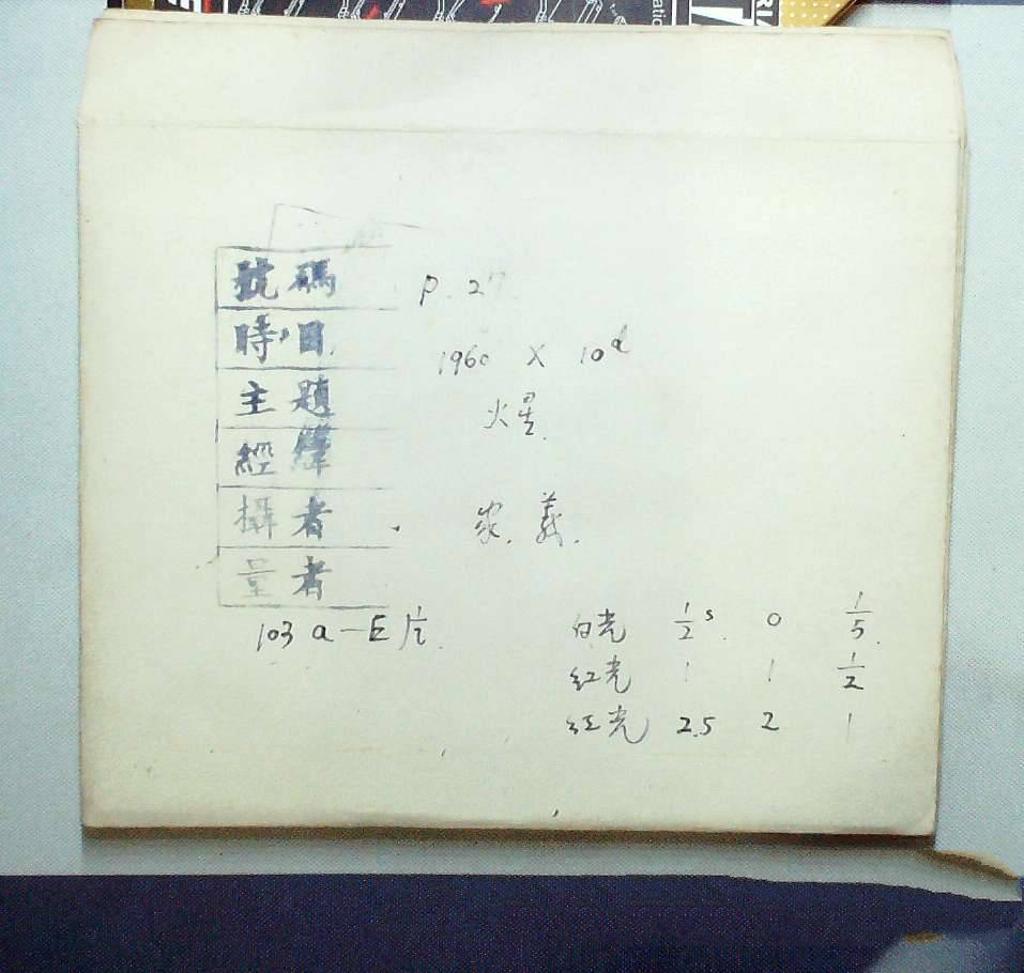 號碼 P. 27
時日 1960 X 10d
主題 火星
經緯
攝者 家. 義.
量者
103a-E片
白光 1/2s 0 1/5
紅光 1 1 1/2
紅光 2.5 2 1